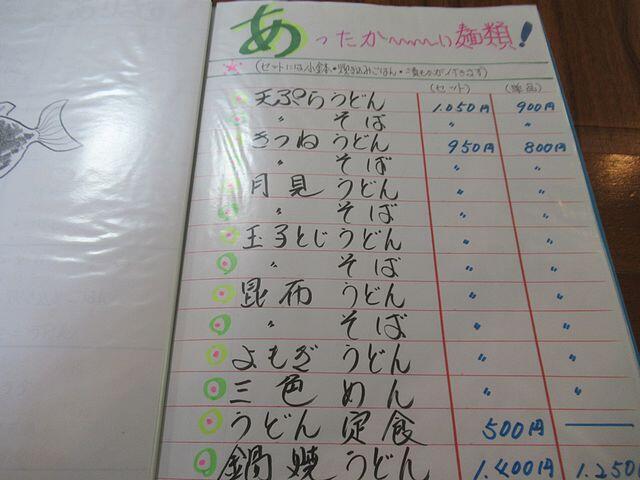 あったか〜〜い麺類!
(セットには小鉢・炊き込みごはん・漬ものがイ寸きます)
(セット) (単品)
天ぷらうどん 1.050円 900円
〃 そば 〃 〃
きつねうどん 950円 800円
〃 そば 〃 〃
月見うどん 〃 〃
〃 そば 〃 〃
玉子とじうどん 〃 〃
〃 そば 〃 〃
昆布うどん 〃 〃
〃 そば 〃 〃
よもぎうどん 〃 〃
三色めん 〃 〃
うどん定食 500円 ―
鍋焼うどん 1.400円 1.250